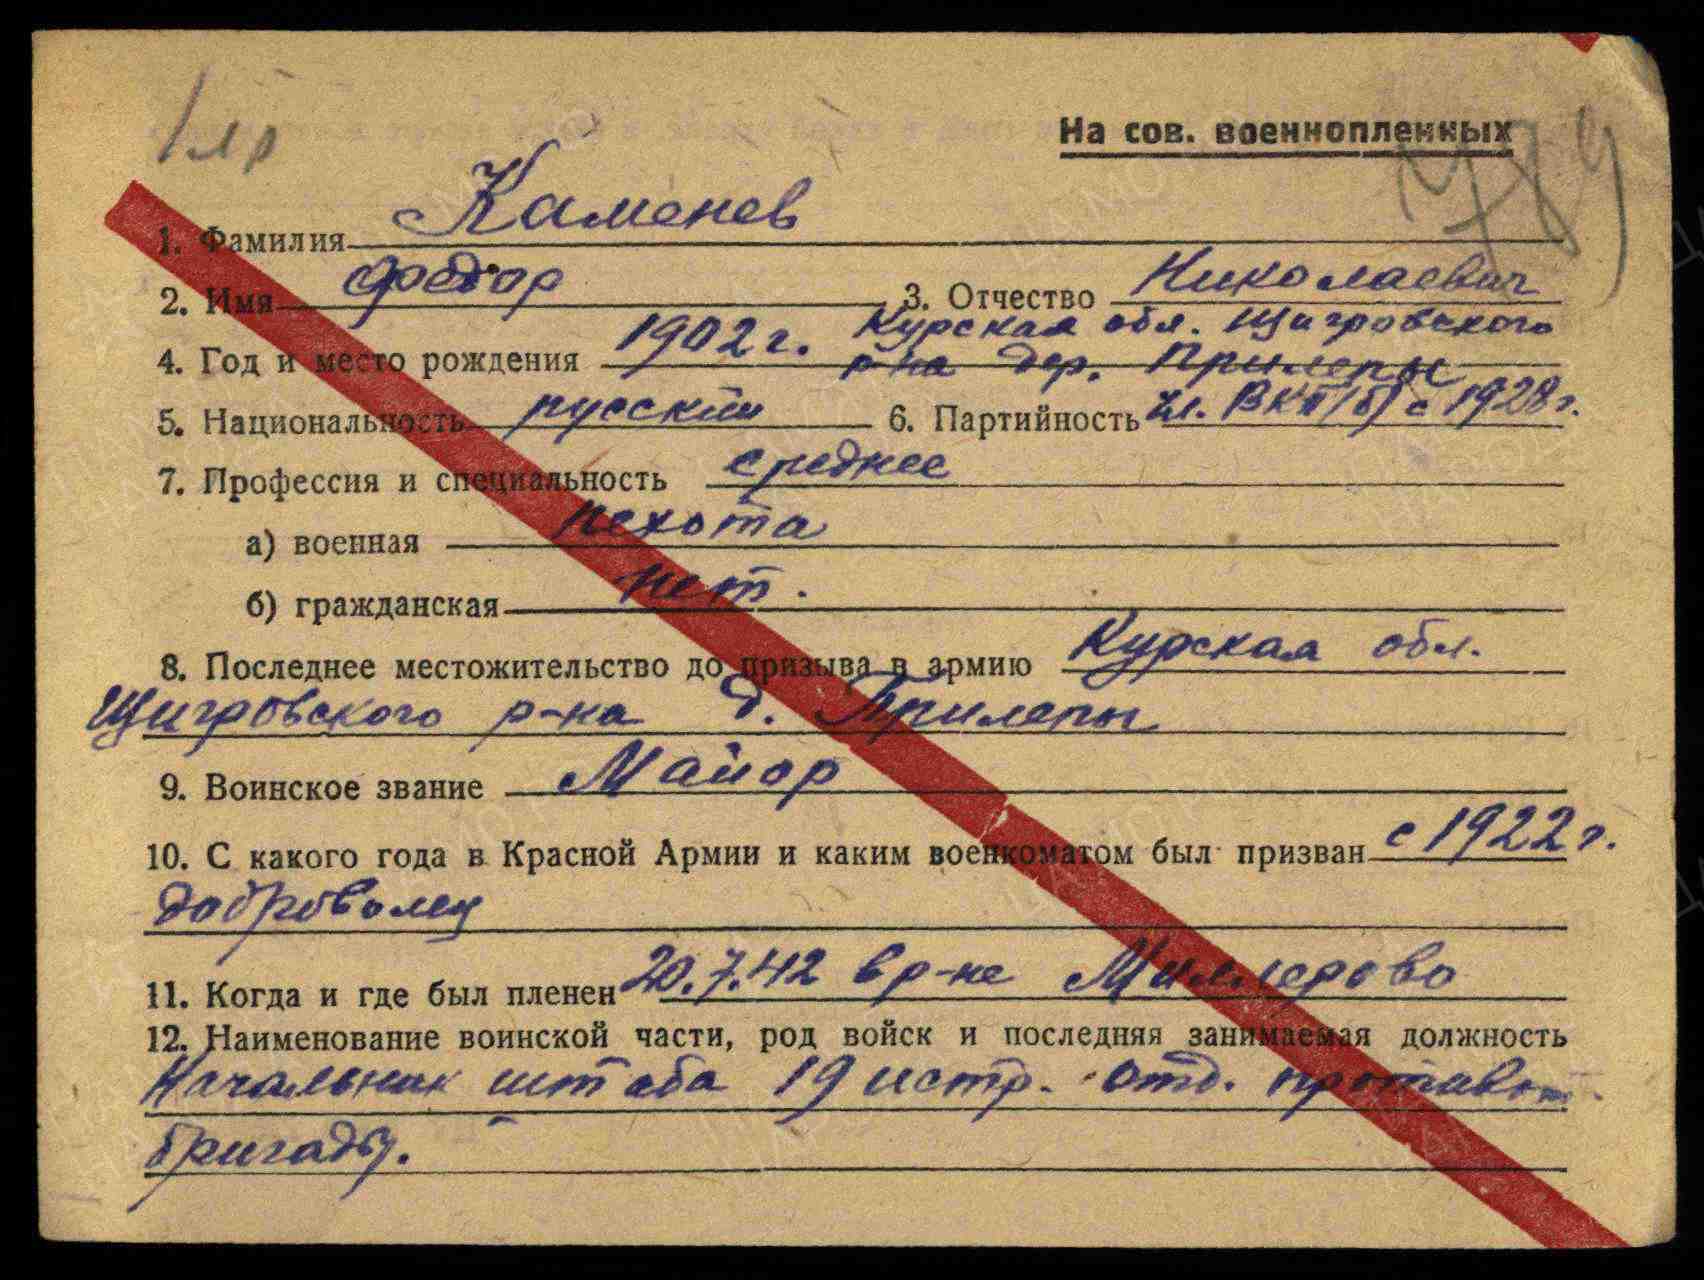 На сов. военнопленных
789
1. Фамилия Каменев
2. Имя Федор 3. Отчество Николаевич
4. Год и место рождения 1902 г. Курская обл. Щигровского
р-на дер. Прилепы
5. Национальность русский 6. Партийность чл. ВКП(б) с 1928 г.
7. Профессия и специальность среднее
а) военная пехота
б) гражданская нет.
8. Последнее местожительство до призыва в армию Курская обл.
Щигровского р-на д. Прилепы
9. Воинское звание Майор
10. С какого года в Красной Армии и каким военкоматом был призван с 1922 г.
доброволец
11. Когда и где был пленен 20.7.42 в р-не Миллерово
12. Наименование воинской части, род войск и последняя занимаемая должность
Начальник штаба 19 истр. отд. противот.
бригады.